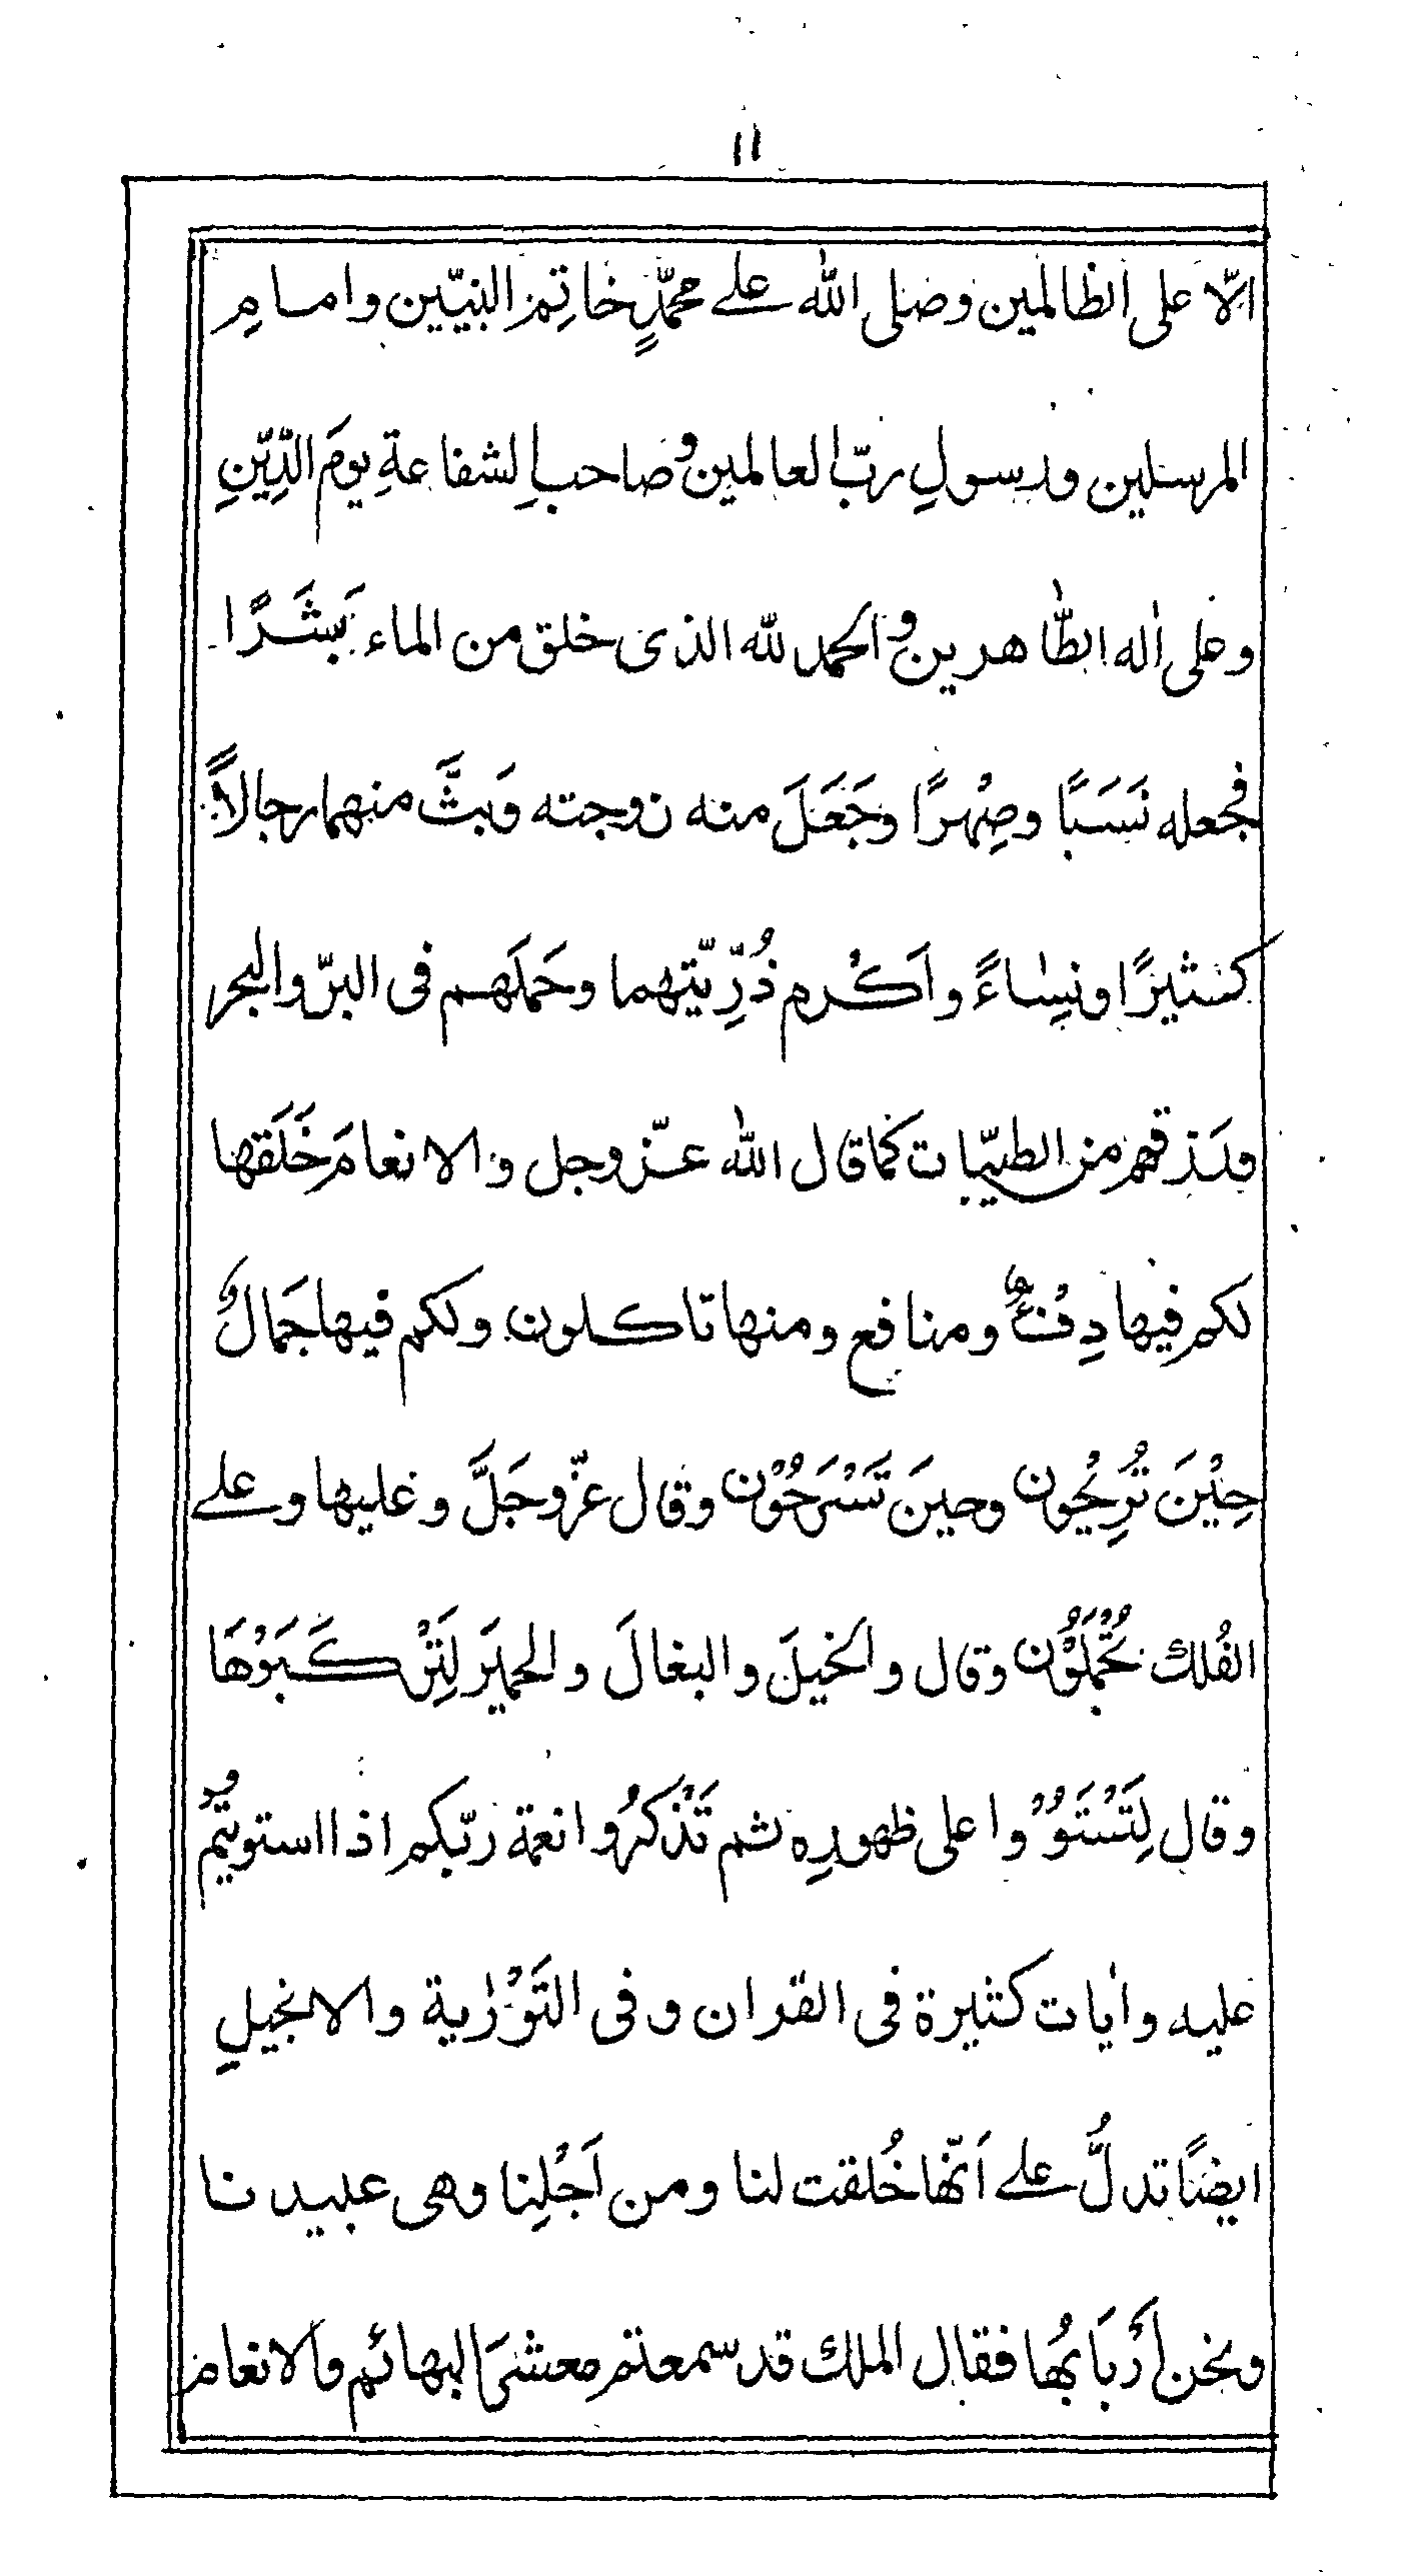 ١١
الّا على الظالمين وصلى اللّٰه علے محمّدٍ خاتِم النبيّين وامامِ
المرسلين ورسولِ ربّ العالمين وصاحبِ الشفاعةِ يومَ الدِّينِ
وعلى اٰله الطّاهرين والحمد للّٰه الذى خلق من الماء بَشَرًا
فجعله نَسَبًا وصِهْرًا وجَعَلَ منه زوجته وَبثَّ منهما رجالاً
كثيرًا ونِساءً واَكْرم ذُرِّيّتهما وحَمَلَهم فى البرّ والبحر
ورَزقهم من الطيّبات كما قال اللّٰه عزّوجل والانعامَ خَلَقها
لكم فيها دِفْءٌ ومنافع ومنها تاكلون ولكم فيها جَمالٌ
حِيْنَ تُرِيْحُون وحينَ تَسْرَحُوْن وقال عزّوجَلَّ وعليها وعلے
الفُلك تُحْمَلُوْن وقال والخيلَ والبغالَ والحميرَ لِتَرْكَبَوْهَا
وقال لِتَسْتَوُوْا على ظهورِه ثم تَذْكرُوا نعمة ربّكم اذا استويتُمْ
عليه واٰيات كثيرة فى القران وفى التَوْرٰية والانجيلِ
ايضًا تدلُّ علے اَنّها خُلقت لنا ومن اَجْلِنا وهى عبيدنا
ونحن اَرْبَابُها فقال الملك قد سمعتم معشرَ البهائم والانعام